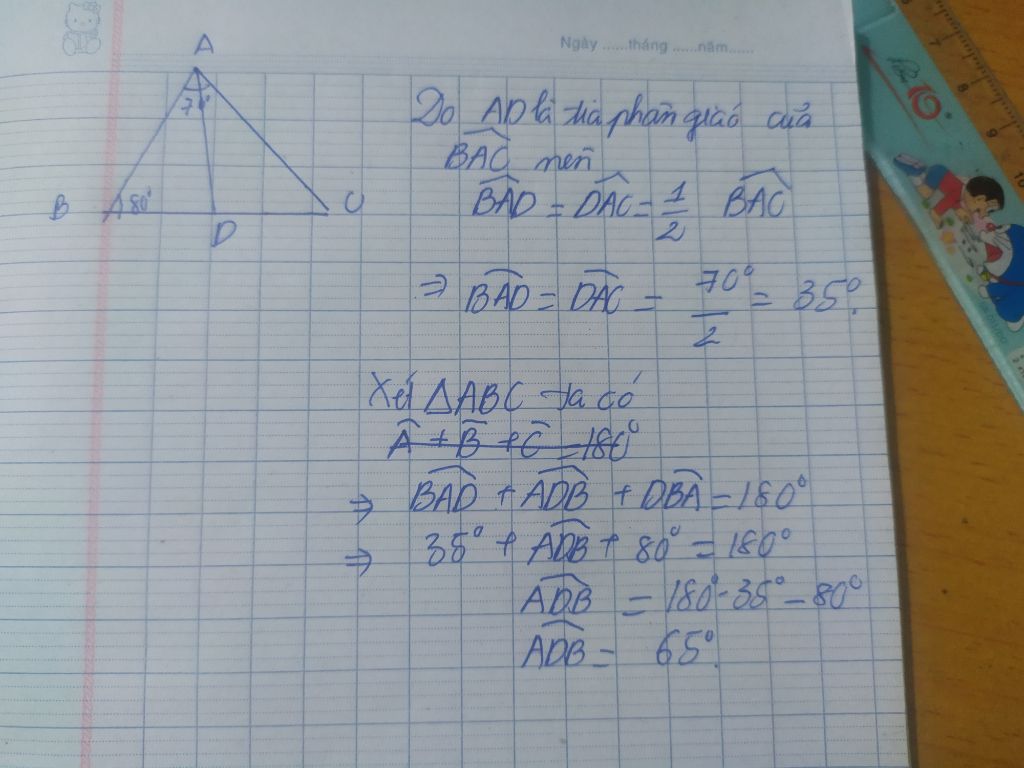 Ngày ......tháng ......năm......
A
70°
B 80° C
D
Do AD là tia phân giác của
BAC nên
BAD = DAC = 1/2 BAC
⇒ BAD = DAC = 70°/2 = 35°.
Xét ΔABC ta có
A + B + C = 180°
⇒ BAD + ADB + DBA = 180°
⇒ 35° + ADB + 80° = 180°
ADB = 180° - 35° - 80°
ADB = 65°.
10
7
8
9
10